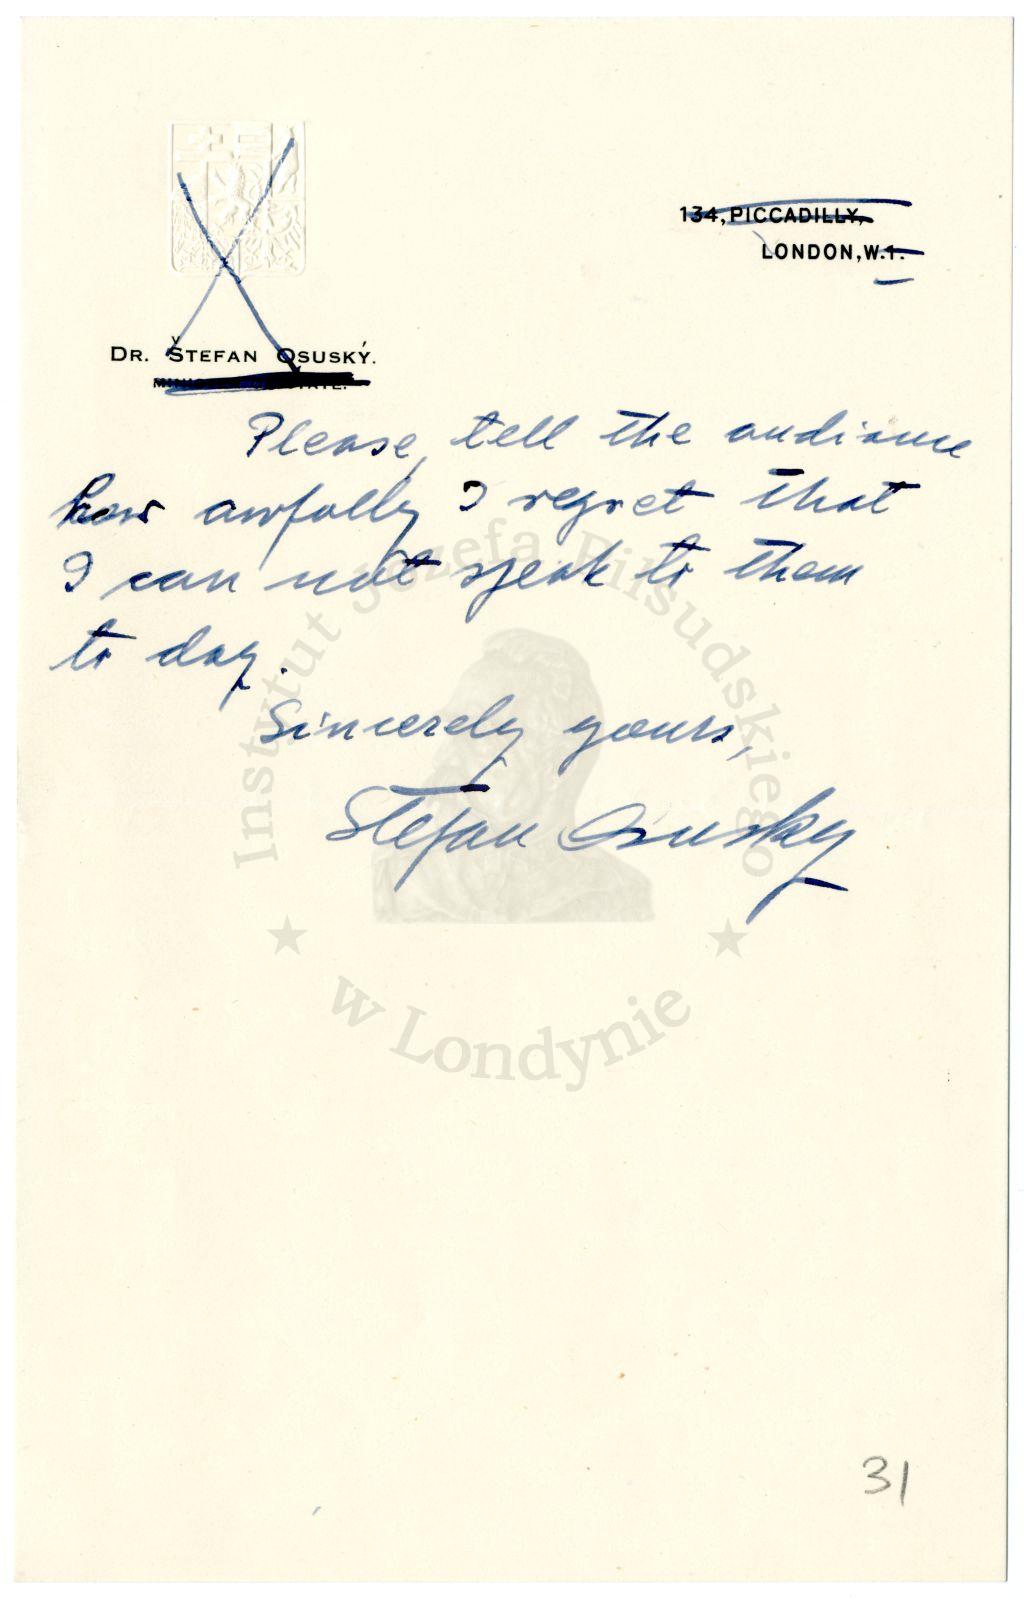 134, PICCADILLY,
LONDON, W.1.
DR. ŠTEFAN OSUSKÝ.
MINISTER OF STATE.
Please, tell the audience
how awfully I regret that
I can not speak to them
to day.
Sincerely yours,
Stefan Osusky
Instytut Józefa Piłsudskiego
w Londynie
31